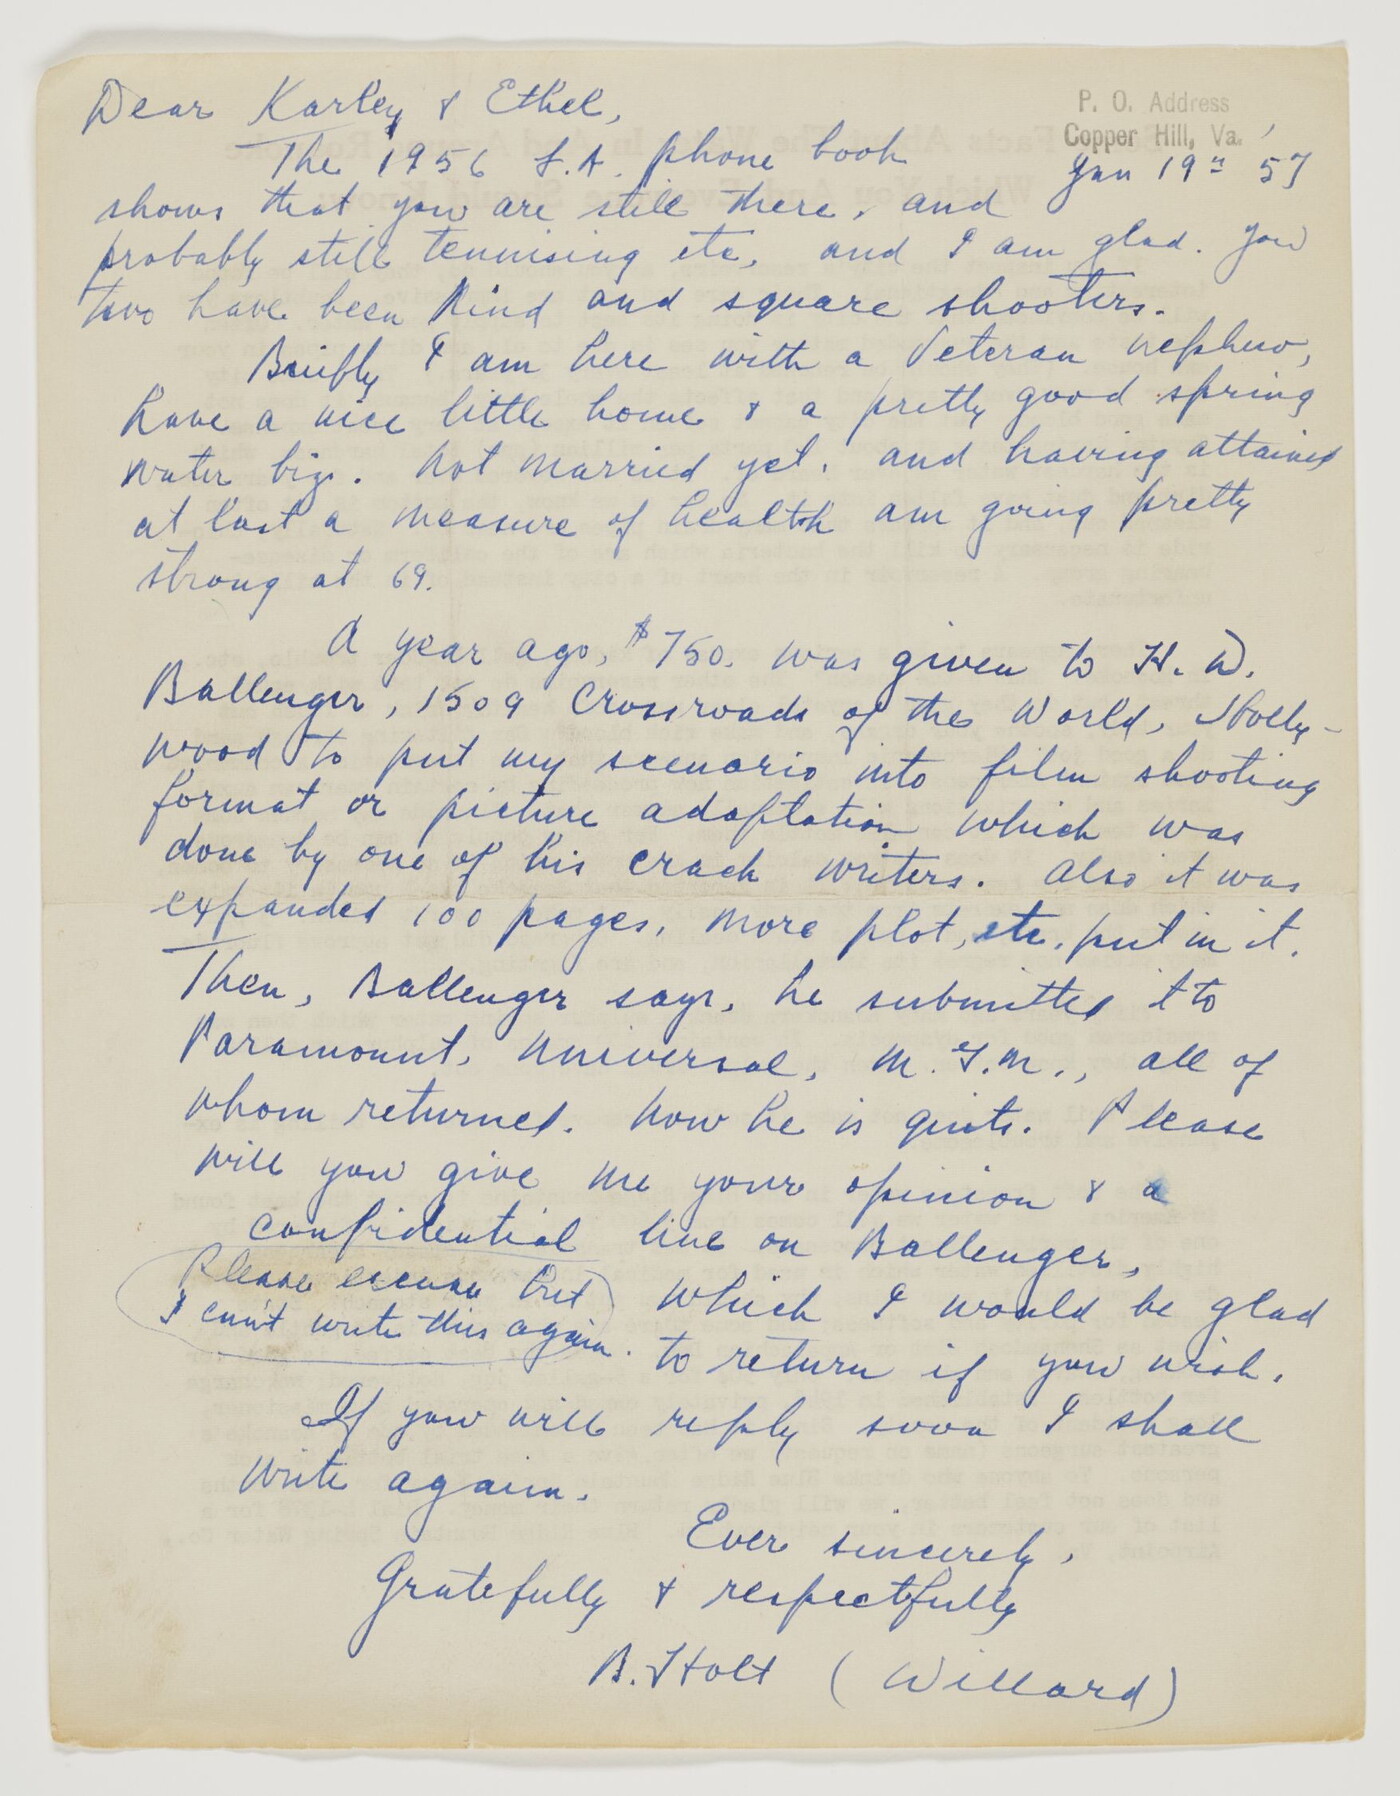 P. O. Address
Copper Hill, Va.
Jan 19th '57
Dear Karley & Ethel,
The 1956 L.A. phone book
shows that you are still there, and
probably still tennising etc, and I am glad. You
two have been kind and square shooters.
Briefly I am here with a Veteran nephew,
have a nice little home & a pretty good spring
water biz. Not married yet, and having attained
at last a measure of health am going pretty
strong at 69.
A year ago, $750. was given to H. D.
Ballenger, 1509 Crossroads of the World, Holly-
wood to put my scenario into film shooting
format or picture adaptation which was
done by one of his crack writers. Also it was
expanded 100 pages, more plot, etc. put in it.
Then, Ballenger says, he submitted it to
Paramount, Universal, M.G.M., all of
whom returned. Now he is quits. Please
will you give me your opinion & a
confidential line on Ballenger,
which I would be glad
to return if you wish.
Please excuse but
I can't write this again.
If you will reply soon I shall
write again.
Ever sincerely,
Gratefully & respectfully
B. Holt (Willard)